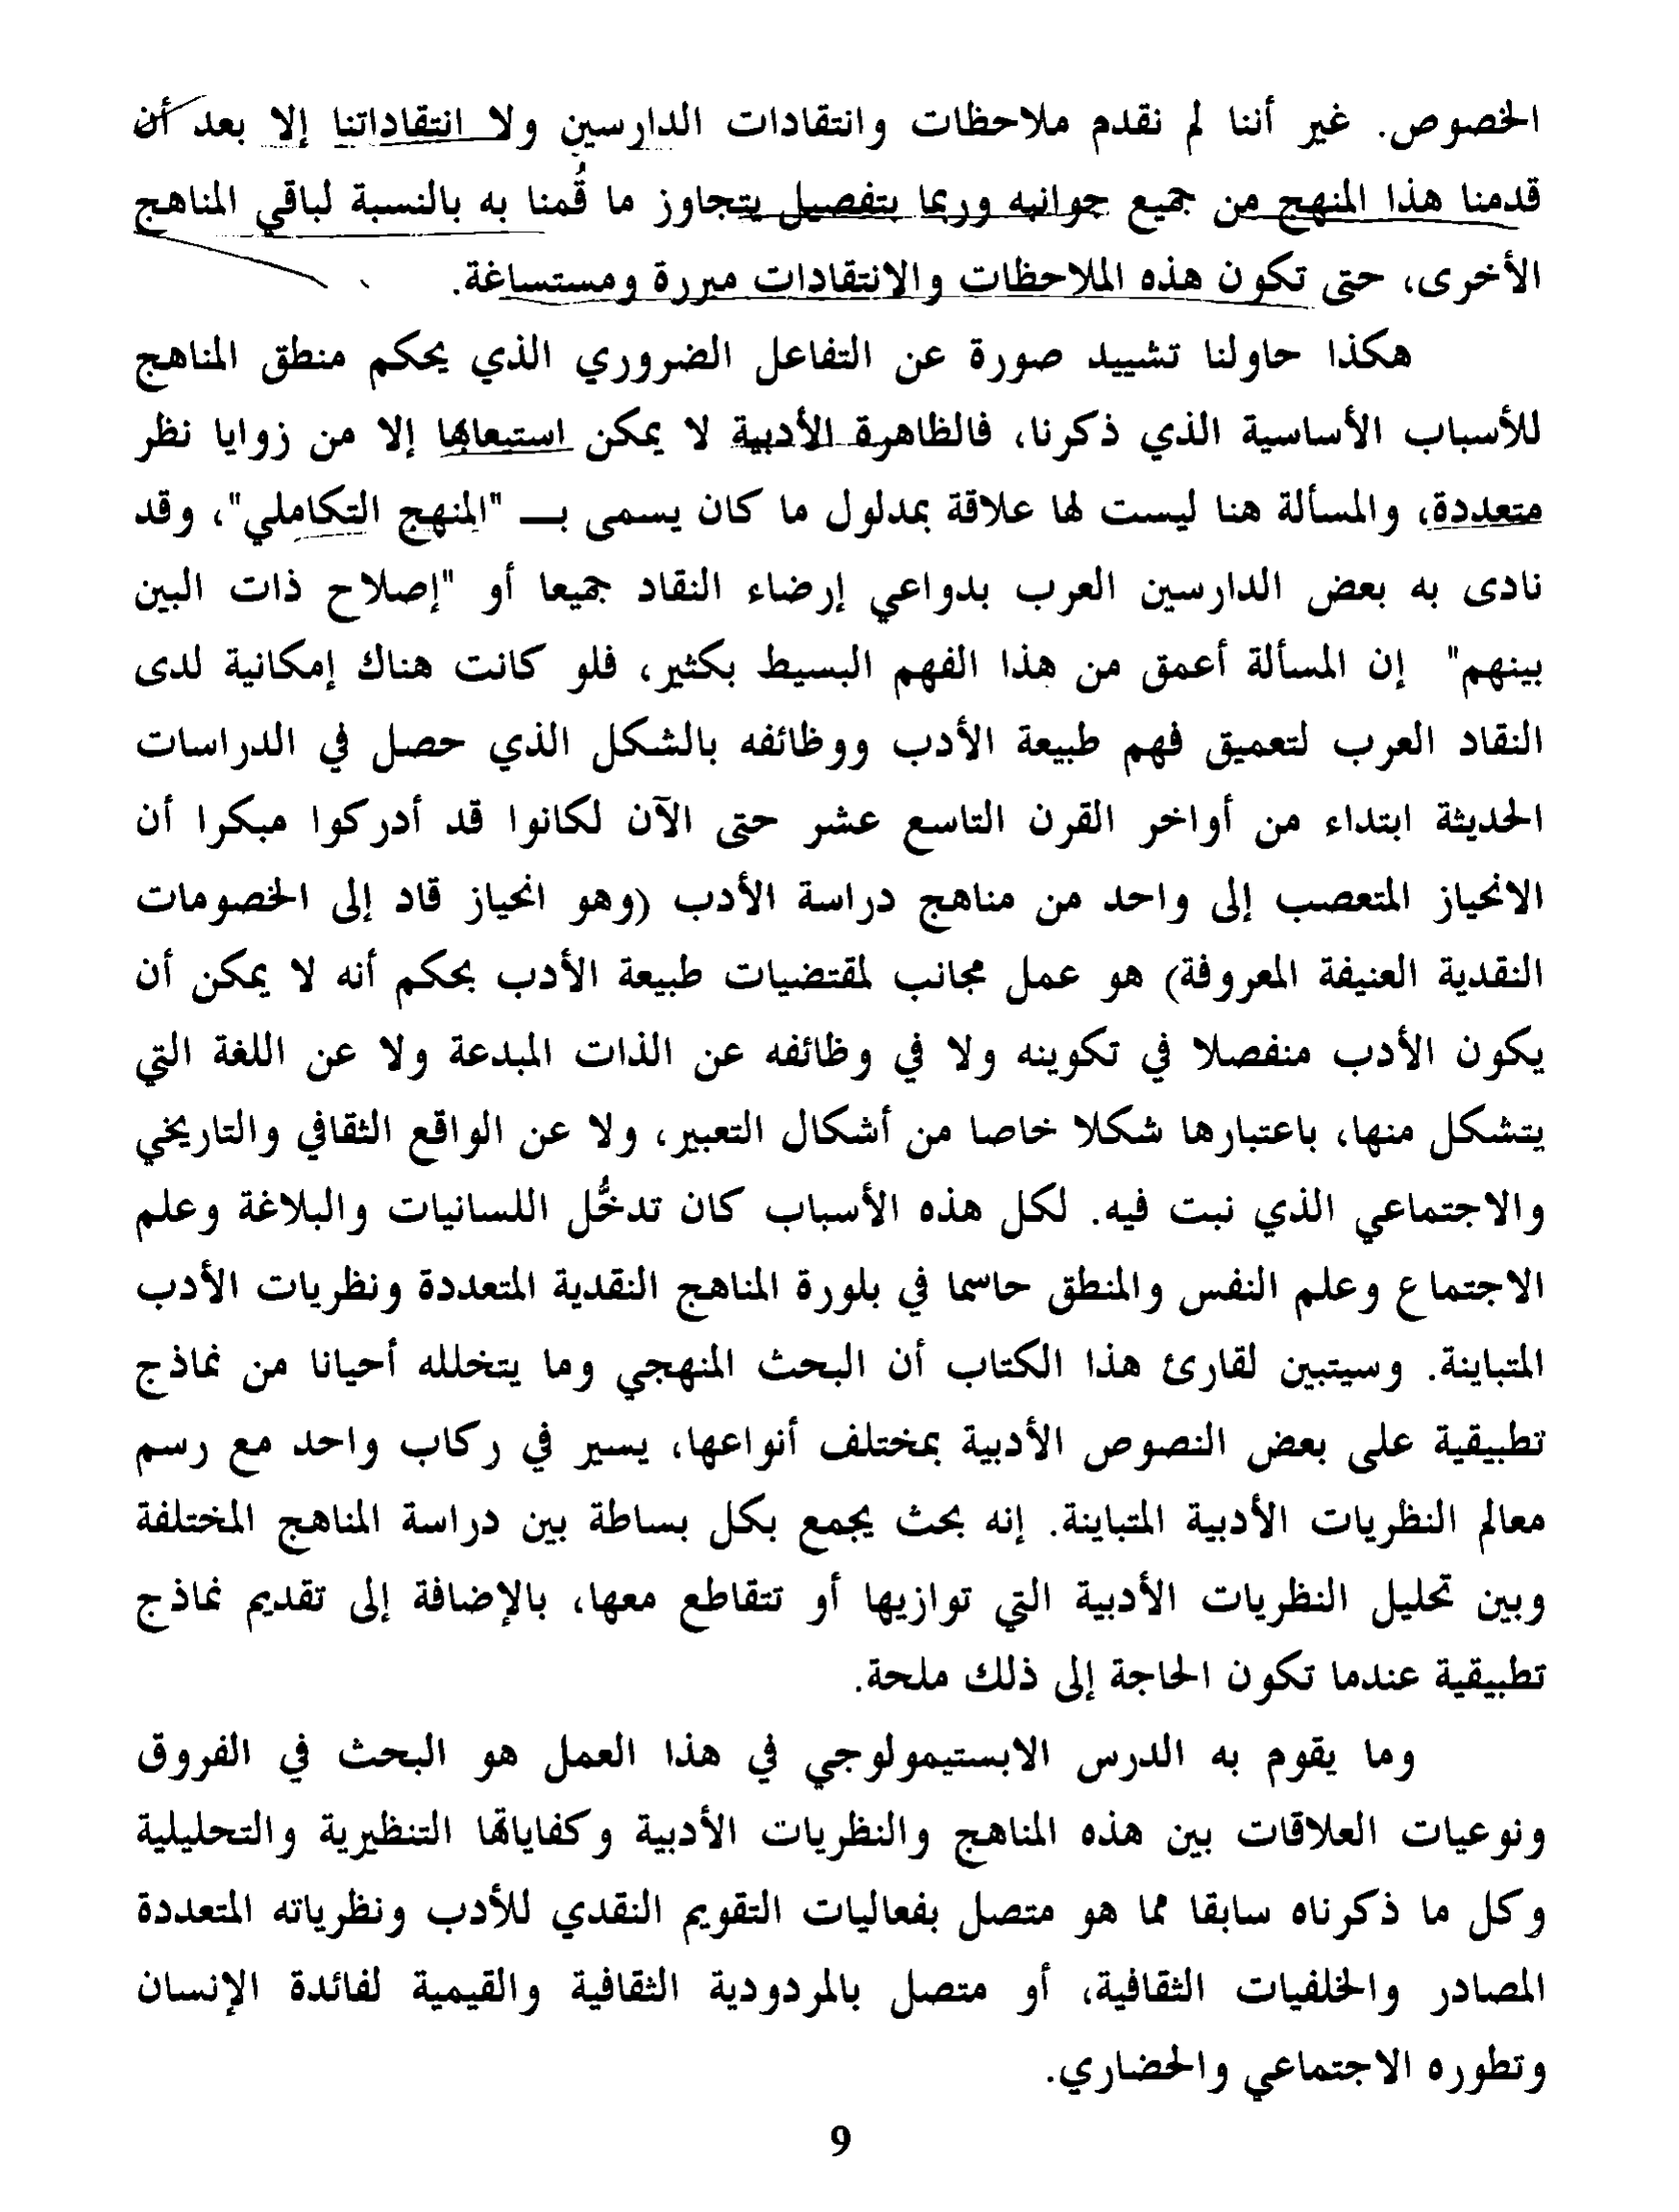 الخصوص. غير أننا لم نقدم ملاحظات وانتقادات الدارسين ولا انتقاداتنا إلا بعد أن
قدمنا هذا المنهج من جميع جوانبه وربما بتفصيل يتجاوز ما قُمنا به بالنسبة لباقي المناهج
الأخرى، حتى تكون هذه الملاحظات والانتقادات مبررة ومستساغة.
هكذا حاولنا تشييد صورة عن التفاعل الضروري الذي يحكم منطق المناهج
للأسباب الأساسية الذي ذكرنا، فالظاهرة الأدبية لا يمكن استيعابها إلا من زوايا نظر
متعددة، والمسألة هنا ليست لها علاقة بمدلول ما كان يسمى بـ "المنهج التكاملي"، وقد
نادى به بعض الدارسين العرب بدواعي إرضاء النقاد جميعا أو "إصلاح ذات البين
بينهم" إن المسألة أعمق من هذا الفهم البسيط بكثير، فلو كانت هناك إمكانية لدى
النقاد العرب لتعميق فهم طبيعة الأدب ووظائفه بالشكل الذي حصل في الدراسات
الحديثة ابتداء من أواخر القرن التاسع عشر حتى الآن لكانوا قد أدركوا مبكرا أن
الانحياز المتعصب إلى واحد من مناهج دراسة الأدب (وهو انحياز قاد إلى الخصومات
النقدية العنيفة المعروفة) هو عمل مجانب لمقتضيات طبيعة الأدب بحكم أنه لا يمكن أن
يكون الأدب منفصلا في تكوينه ولا في وظائفه عن الذات المبدعة ولا عن اللغة التي
يتشكل منها، باعتبارها شكلا خاصا من أشكال التعبير، ولا عن الواقع الثقافي والتاريخي
والاجتماعي الذي نبت فيه. لكل هذه الأسباب كان تدخُّل اللسانيات والبلاغة وعلم
الاجتماع وعلم النفس والمنطق حاسما في بلورة المناهج النقدية المتعددة ونظريات الأدب
المتباينة. وسيتبين لقارئ هذا الكتاب أن البحث المنهجي وما يتخلله أحيانا من نماذج
تطبيقية على بعض النصوص الأدبية بمختلف أنواعها، يسير في ركاب واحد مع رسم
معالم النظريات الأدبية المتباينة. إنه بحث يجمع بكل بساطة بين دراسة المناهج المختلفة
وبين تحليل النظريات الأدبية التي توازيها أو تتقاطع معها، بالإضافة إلى تقديم نماذج
تطبيقية عندما تكون الحاجة إلى ذلك ملحة.
وما يقوم به الدرس الابستيمولوجي في هذا العمل هو البحث في الفروق
ونوعيات العلاقات بين هذه المناهج والنظريات الأدبية وكفاياتها التنظيرية والتحليلية
وكل ما ذكرناه سابقا مما هو متصل بفعاليات التقويم النقدي للأدب ونظرياته المتعددة
المصادر والخلفيات الثقافية، أو متصل بالمردودية الثقافية والقيمية لفائدة الإنسان
وتطوره الاجتماعي والحضاري.
9